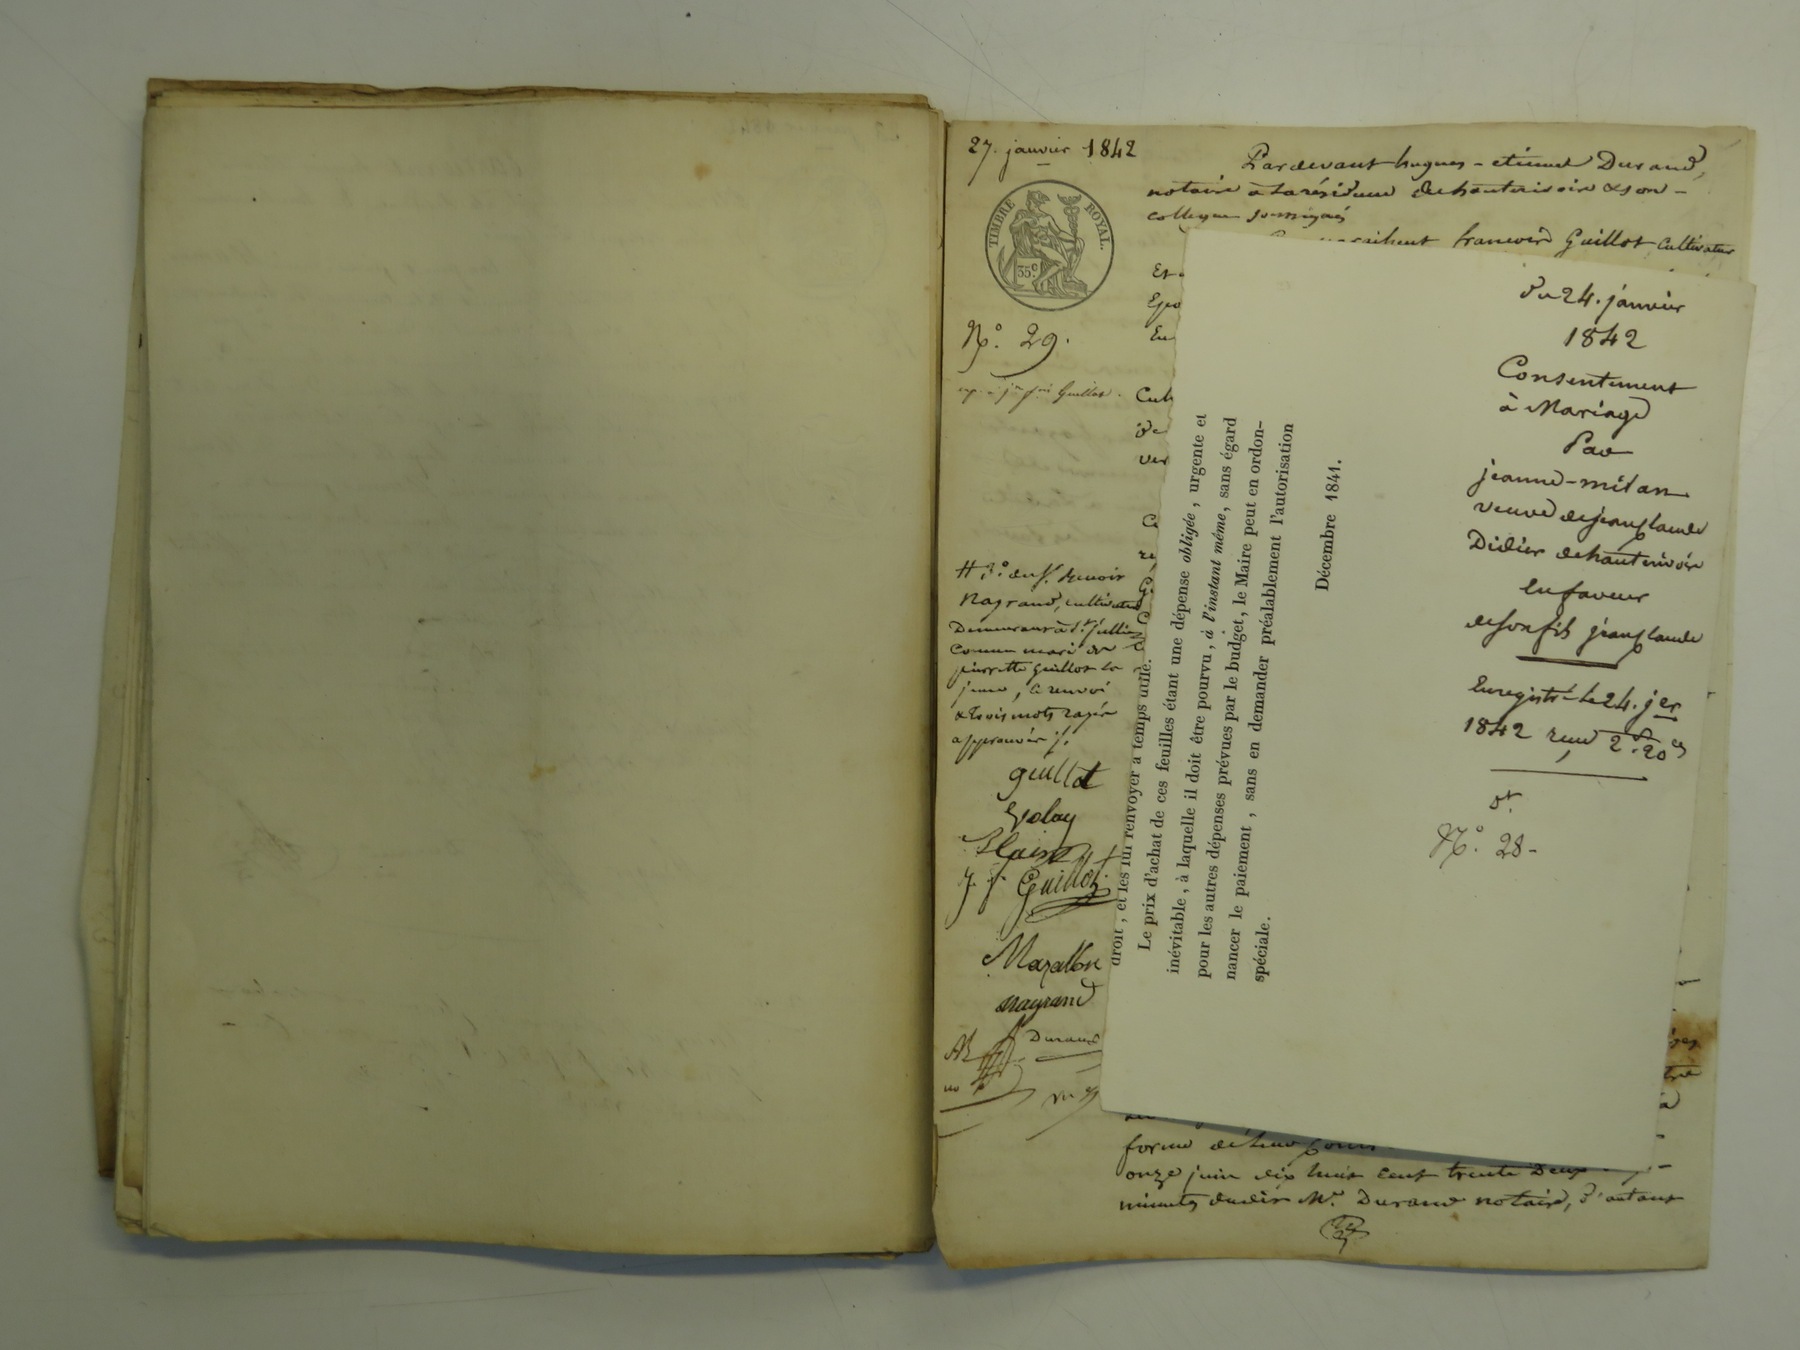 27. janvier 1842
TIMBRE ROYAL.
35 c.
N.° 29.
Guillot.
Pardevant hugues-etienne Durand,
notaire à la résidence de hauterivoire & son
collegue soussignés
Comparaissent francois Guillot, cultivateur
Et
Epo
En
Cult
de
ver
Nagrand, cultivateur
Demeurant à St. jullien
comme mari de
pierrette Guillot la
jeune, le renvoi
& trois mots rayés
approuvés
guillot
J. f. Guillot
Mazallon
nagrand
Durand
forme de
onze juin dix huit cent trente Deux
minutes dudit Me. Durand notaire, d'autant
Du 24. janvier
1842
Consentement
à Mariage
Par
jeanne-mélan
veuve de jean claude
Didier de hauterivoire
En faveur
de son fils jean claude
Enregistré le 24. jer
1842 reçu 2 f. 20 cs
N.° 28-
droit, et les lui renvoyer à temps utile.
Le prix d'achat de ces feuilles étant une dépense obligée, urgente et
inévitable, à laquelle il doit être pourvu, à l'instant même, sans égard
pour les autres dépenses prévues par le budget, le Maire peut en ordon-
nancer le paiement, sans en demander préalablement l'autorisation
spéciale.
Décembre 1841.